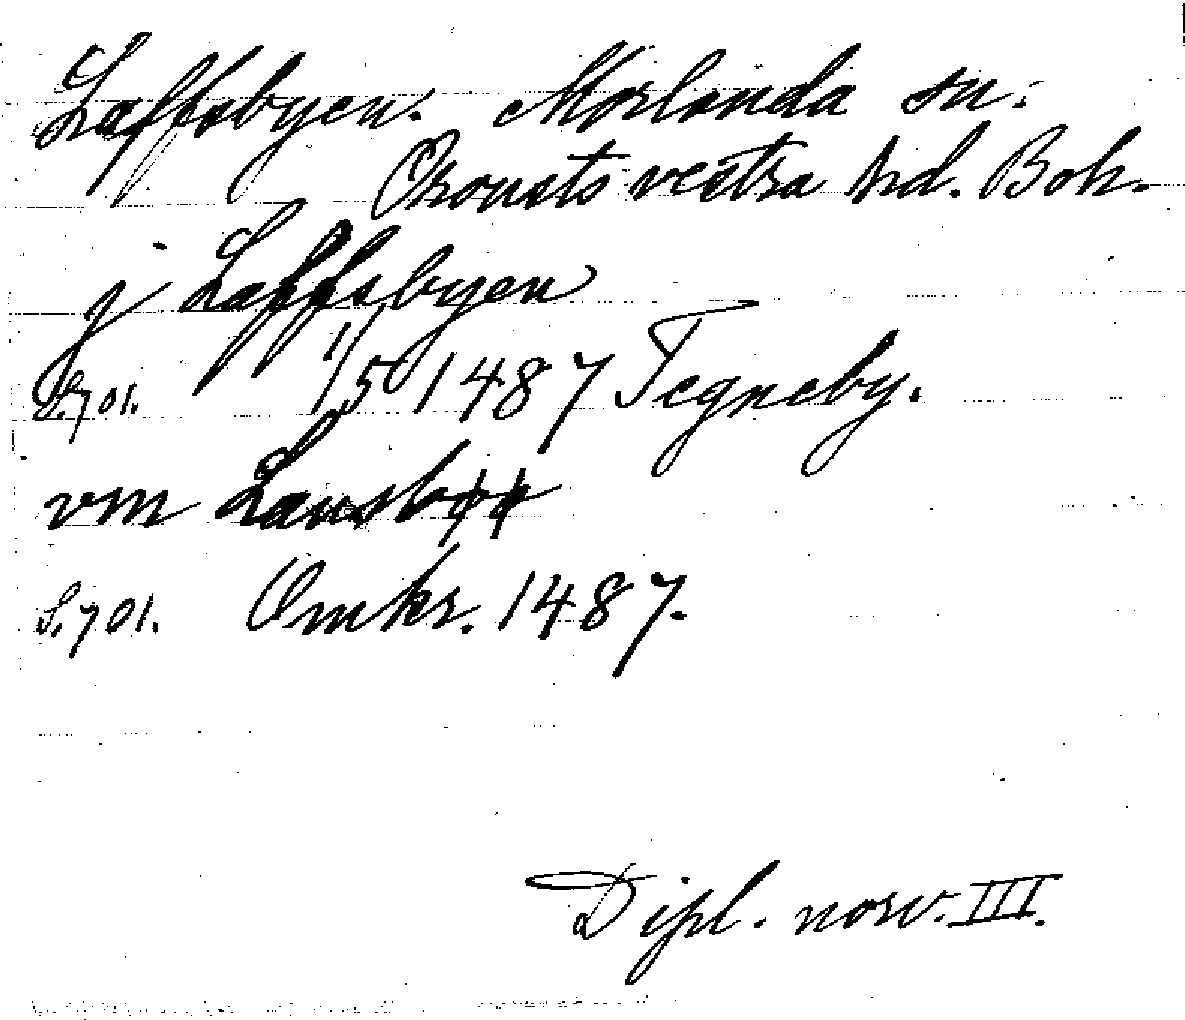 Laffsbyen. Morlanda sn.
Orousts vestra hd. Boh.
j Laffsbyen
S. 701. 1/5 1487 Tegneby.
vm Lausbøø
S. 701. Omkr. 1487.
Dipl. norv. III.